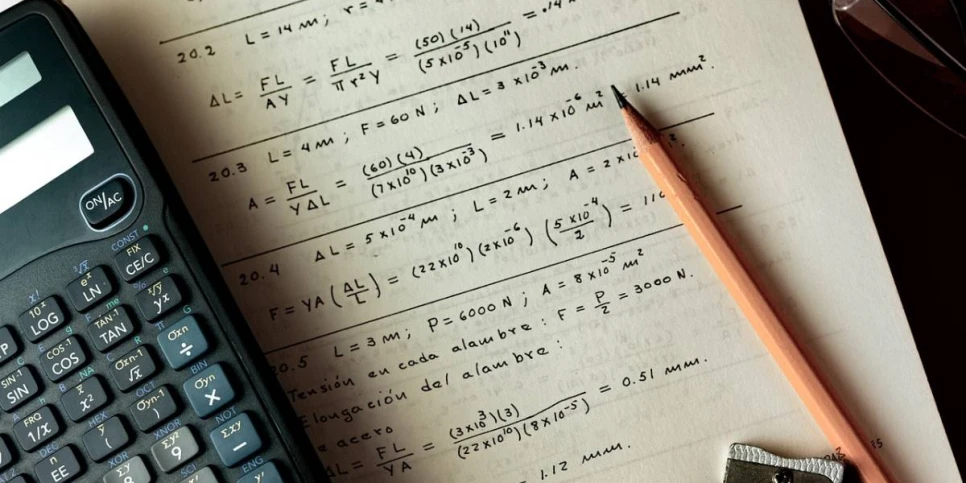 20.2 L = 14 m; r = 4
ΔL = FL/AY = FL/πr²Y = (50)(14)/(5×10⁻⁵)(10¹¹) = .14
20.3 L = 4 m; F = 60 N; ΔL = 3 ×10⁻³ m.
A = FL/YΔL = (60)(4)/(7×10¹⁰)(3×10⁻³) = 1.14 ×10⁻⁶ m² = 1.14 mm².
20.4 ΔL = 5×10⁻⁴ m; L = 2 m; A = 2 ×10
F = YA (ΔL/L) = (22×10¹⁰)(2×10⁻⁶) (5×10⁻⁴/2) = 110
20.5 L = 3 m; P = 6000 N; A = 8×10⁻⁵ m²
Tensión en cada alambre: F = P/2 = 3000 N.
Elongación del alambre:
acero
ΔL = FL/YA = (3×10³)(3)/(22×10¹⁰)(8×10⁻⁵) = 0.51 mm.
= 1.12 mm.
ON/AC
CONST
FIX
CE/C
√x eˣ LN
yˣ
x! 10ˣ LOG
TAN-1 TAN
σxn ÷
COS-1 COS
σxn-1 √x
SIN-1 SIN
x̄ x²
σyn-1 )
σyn ×
BIN
FRQ 1/x
ȳ (
OCT
NOT
DEC
HEX
XNOR
Σxy −
EE
XOR
Σy² 9
SCI
ENG
8